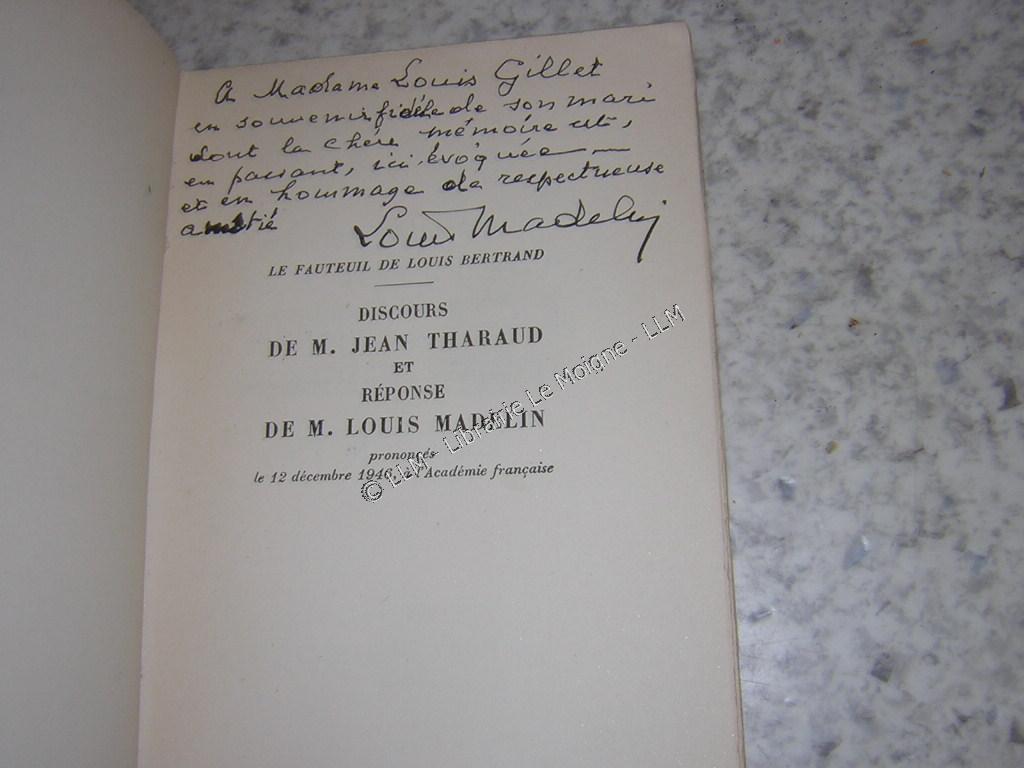 A Madame Louis Gillet
en souvenir fidèle de son mari
dont la chère mémoire est,
en passant, ici évoquée —
et en hommage de respectueuse
amitié
Louis Madelin
LE FAUTEUIL DE LOUIS BERTRAND
DISCOURS
DE M. JEAN THARAUD
ET
RÉPONSE
DE M. LOUIS MADELIN
prononcés
le 12 décembre 1946, à l'Académie française
© LLM - Librairie Le Moigne - LLM